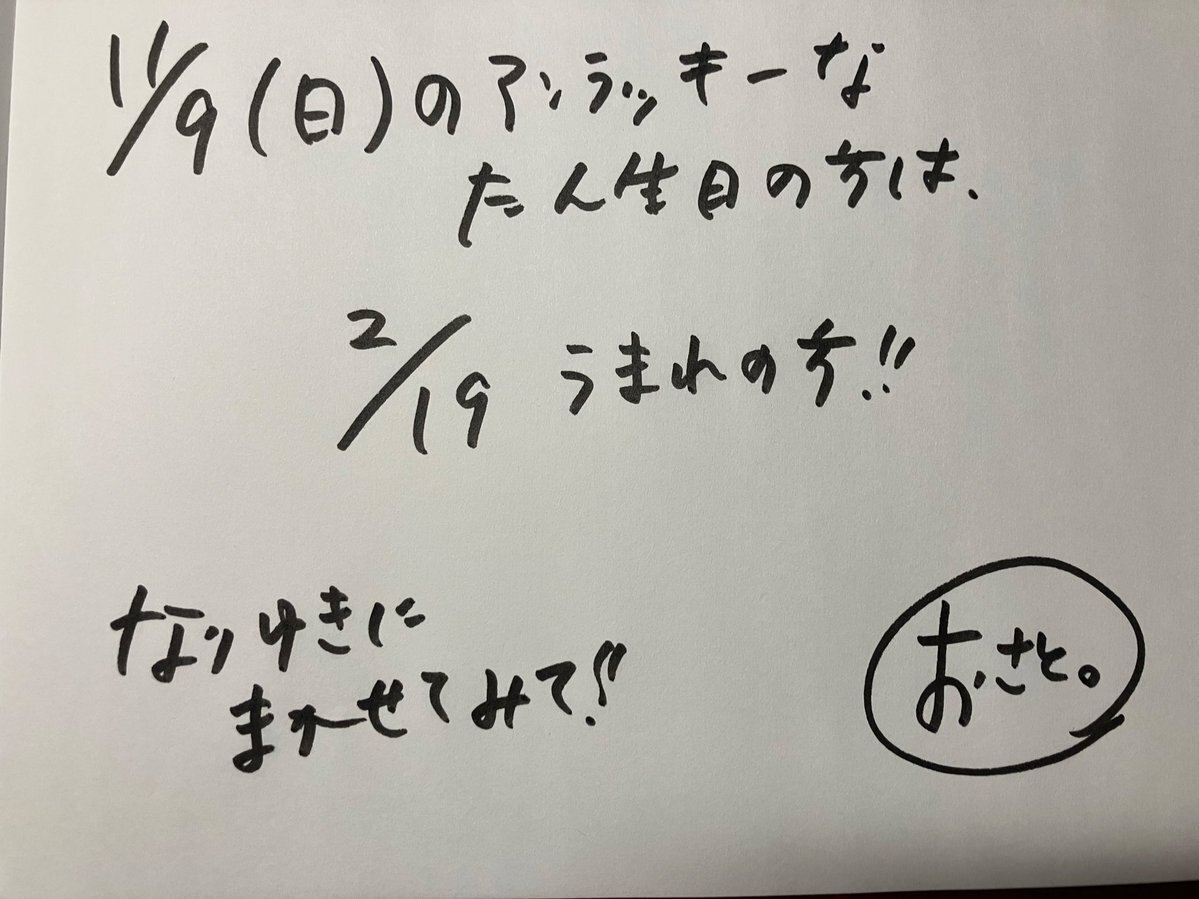 11/9(日)のアンラッキーな
たん生日の方は、
2/19 うまれの方!!
なりゆきに
まかせてみて!!
おさと。